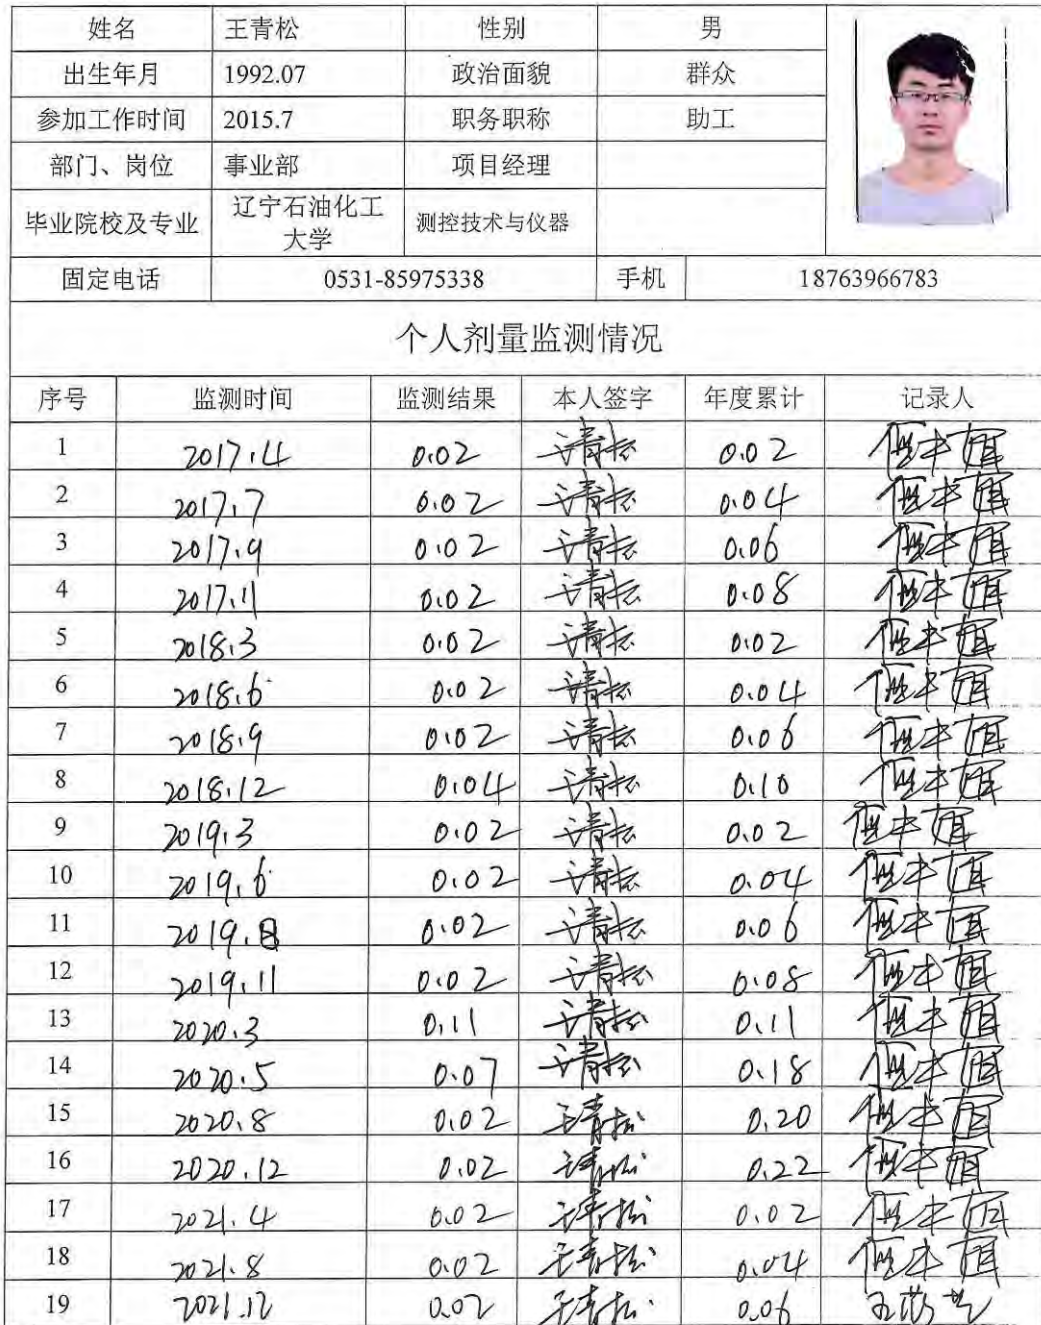 姓名 王青松 性别 男
出生年月 1992.07 政治面貌 群众
参加工作时间 2015.7 职务职称 助工
部门、岗位 事业部 项目经理
毕业院校及专业 辽宁石油化工大学 测控技术与仪器
固定电话 0531-85975338 手机 18763966783
个人剂量监测情况
序号 监测时间 监测结果 本人签字 年度累计 记录人
1 2017.4 0.02 王青松 0.02
2 2017.7 0.02 王青松 0.04
3 2017.9 0.02 王青松 0.06
4 2017.11 0.02 王青松 0.08
5 2018.3 0.02 王青松 0.02
6 2018.6 0.02 王青松 0.04
7 2018.9 0.02 王青松 0.06
8 2018.12 0.04 王青松 0.10
9 2019.3 0.02 王青松 0.02
10 2019.6 0.02 王青松 0.04
11 2019. 0.02 王青松 0.06
12 2019.11 0.02 王青松 0.08
13 2020.3 0.11 王青松 0.11
14 2020.5 0.07 王青松 0.18
15 2020.8 0.02 王青松 0.20
16 2020.12 0.02 王青松 0.22
17 2021.4 0.02 王青松 0.02
18 2021.8 0.02 王青松 0.04
19 2021.12 0.02 王青松 0.06